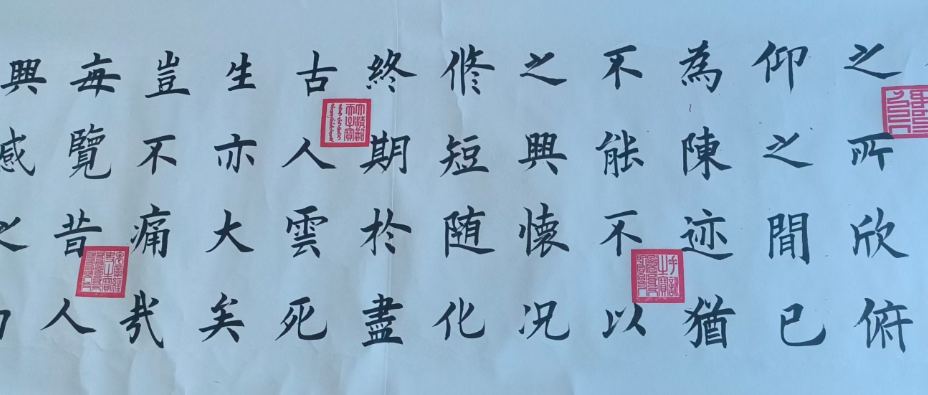 之所欣俯
仰之間已
為陳迹猶
不能不以
之興懷况
修短随化
終期於盡
古人雲死
生亦大矣
豈不痛哉
每覽昔人
興感之